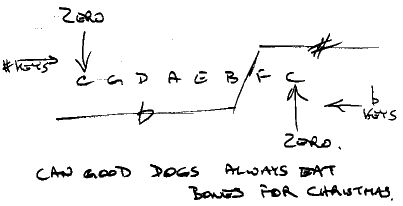 ZERO
# KEYS
C G D A E B F C
#
b
b KEYS
ZERO.
CAN GOOD DOGS ALWAYS EAT
BONES FOR CHRISTMAS.